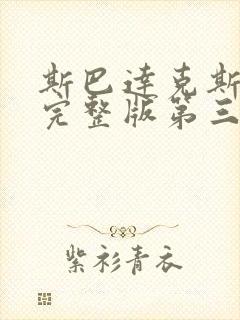 斯巴达克斯
完整版第三
紫衫青衣